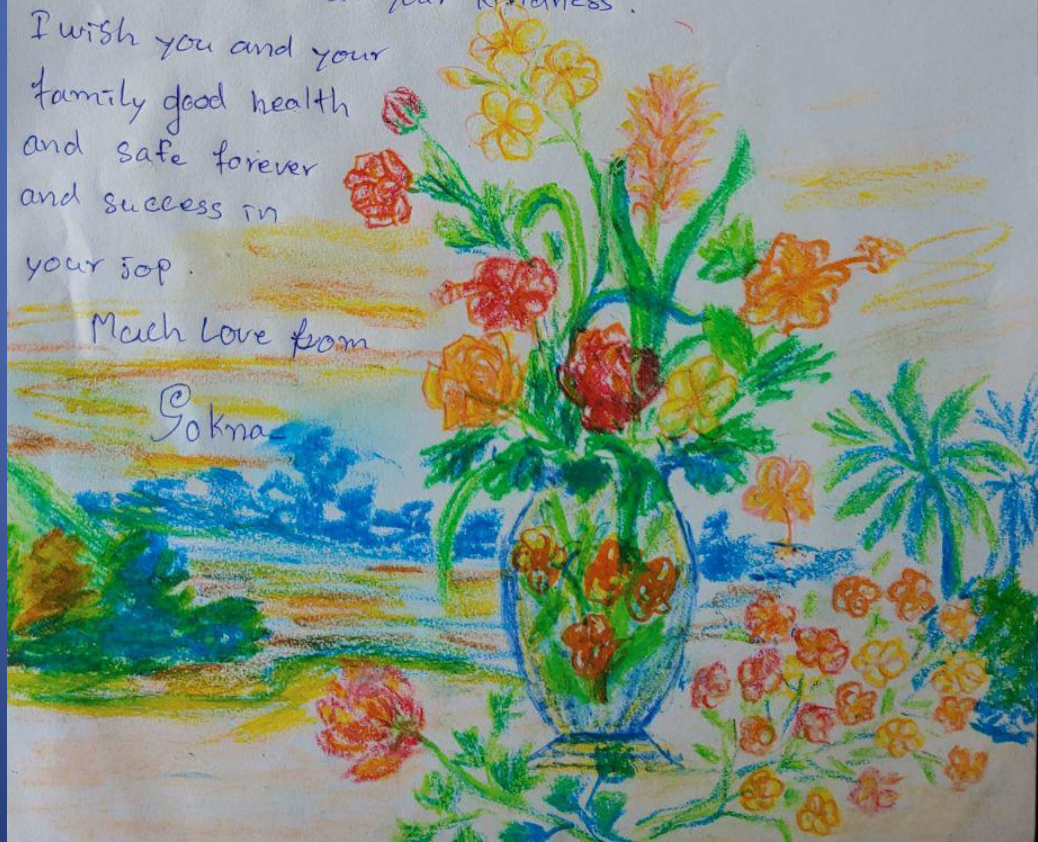 your kindness.
I wish you and your
family good health
and safe forever
and success in
your jop.
Much Love from
Sokna